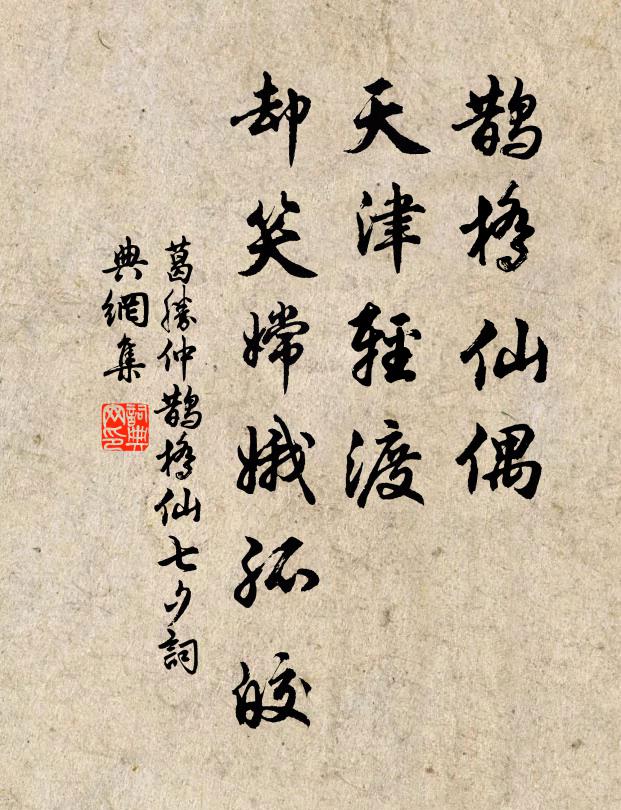 鵲橋仙偶
天津輕渡
却笑嫦娥孤皎
葛勝仲鵲橋仙七夕詞
典網集
詞典
网印